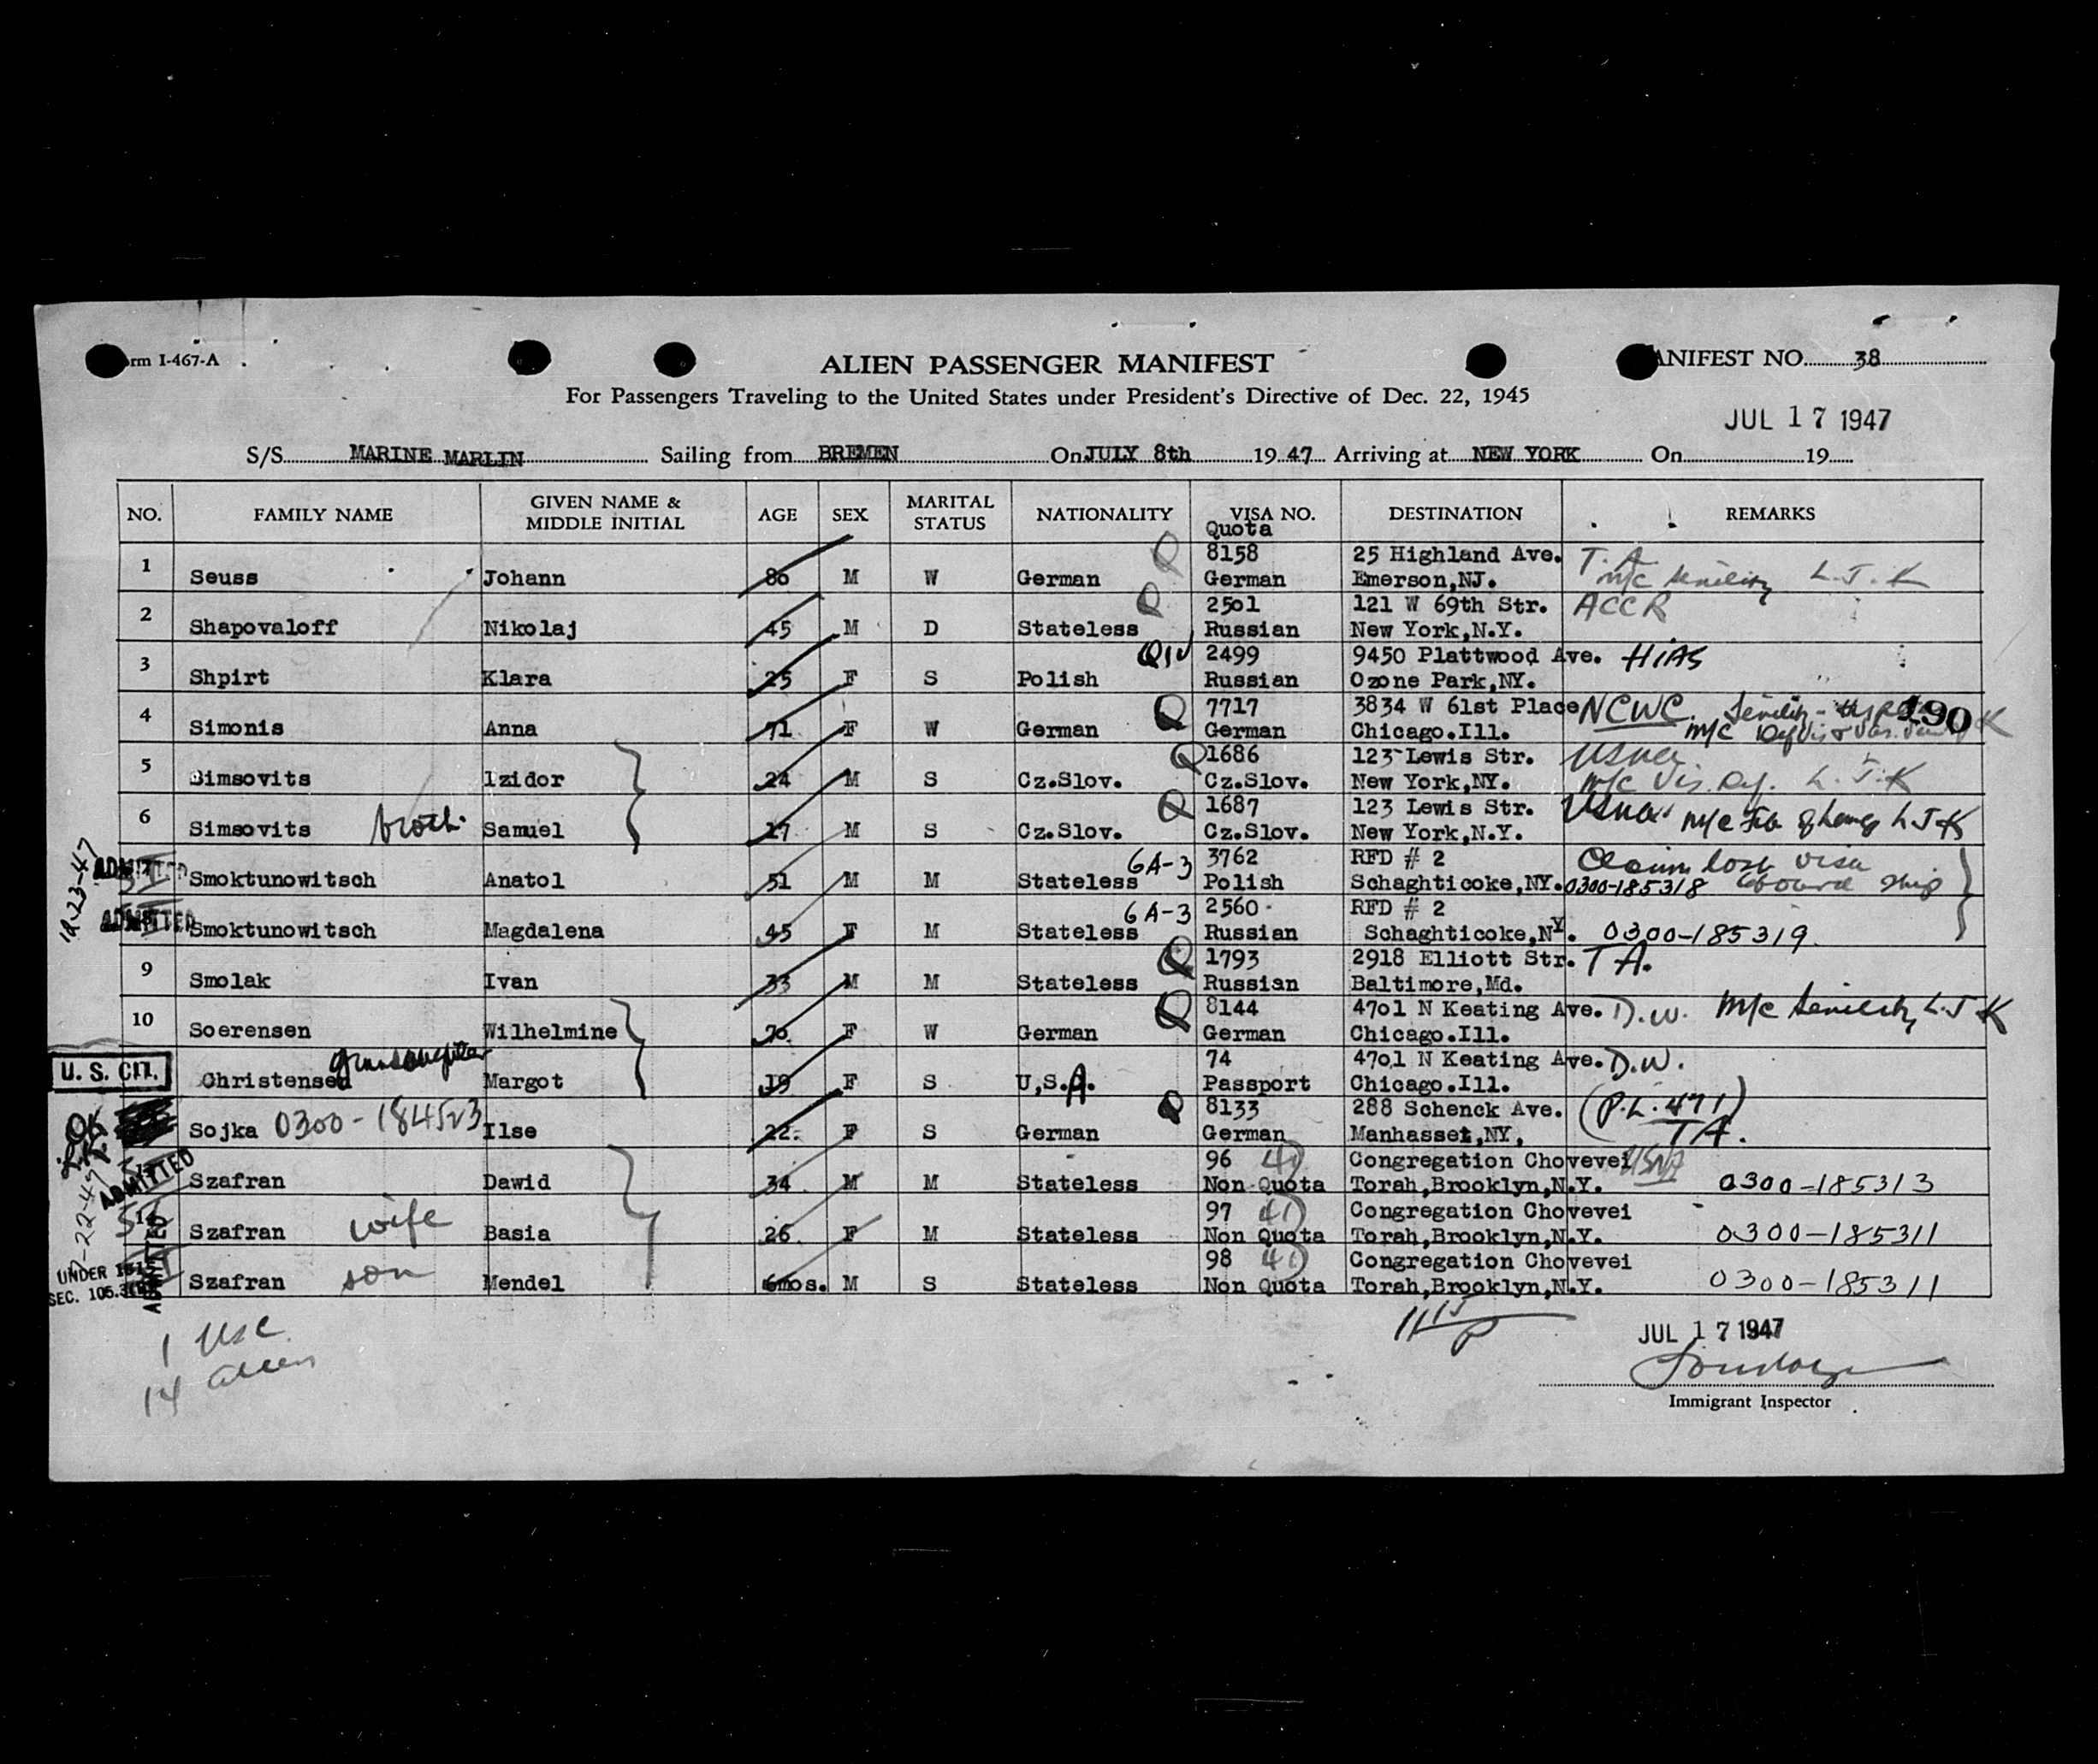 rm I-467-A
ALIEN PASSENGER MANIFEST
ANIFEST NO. 38
For Passengers Traveling to the United States under President's Directive of Dec. 22, 1945
JUL 17 1947
S/S MARINE MARLIN Sailing from BREMEN On JULY 8th 1947 Arriving at NEW YORK On 19
NO. FAMILY NAME GIVEN NAME & MIDDLE INITIAL AGE SEX MARITAL STATUS NATIONALITY VISA NO. DESTINATION REMARKS
Quota
1 Q 8158 25 Highland Ave. T.A
Seuss Johann 80 M W German German Emerson,NJ. M/C senility L.J.K
2 Q 2501 121 W 69th Str. ACCR
Shapovaloff Nikolaj 45 M D Stateless Russian New York,N.Y.
3 QIV 2499 9450 Plattwood Ave. HIAS
Shpirt Klara 25 F S Polish Russian Ozone Park,NY.
4 Q 7717 3834 W 61st Place NCWC. Senility 190 K
Simonis Anna 71 F W German German Chicago.Ill. M/C
5 Q 1686 123 Lewis Str. USNA
Simsovits Izidor 24 M S Cz.Slov. Cz.Slov. New York,NY. M/C Vis. Def. L.J.K
6 Q 1687 123 Lewis Str. USNA
Simsovits broth. Samuel 17 M S Cz.Slov. Cz.Slov. New York,N.Y. M/C L J K
ADMITTED 6A-3 3762 RFD # 2 Claim lost visa
Smoktunowitsch Anatol 51 M M Stateless Polish Schaghticoke,NY. 0300-185318 aboard ship
ADMITTED 6A-3 2560 RFD # 2
Smoktunowitsch Magdalena 45 F M Stateless Russian Schaghticoke,NY. 0300-185319
9 Q 1793 2918 Elliott Str. T A.
Smolak Ivan 33 M M Stateless Russian Baltimore,Md.
10 Q 8144 4701 N Keating Ave. D.W. M/C Senility L.J K
Soerensen Wilhelmine 70 F W German German Chicago.Ill.
U. S. CIT. granddaughter 74 4701 N Keating Ave. D.W.
Christensen Margot 19 F S U.S.A. Passport Chicago.Ill.
OK Q 8133 288 Schenck Ave. (P.L. 471)
Sojka 0300-184523 Ilse 22. F S German German Manhasset,NY, TA.
ADMITTED 96 41) Congregation Chovevei USNA
Szafran Dawid 34 M M Stateless Non Quota Torah,Brooklyn,N.Y. 0300-185313
97 41) Congregation Chovevei
Szafran wife Basia 26 F M Stateless Non Quota Torah,Brooklyn,N.Y. 0300-185311
ADMITTED 98 41) Congregation Chovevei
UNDER
SEC. 105.3
Szafran son Mendel 6mos. M S Stateless Non Quota Torah,Brooklyn,N.Y. 0300-185311
1 USC
14 alien
JUL 17 1947
Immigrant Inspector